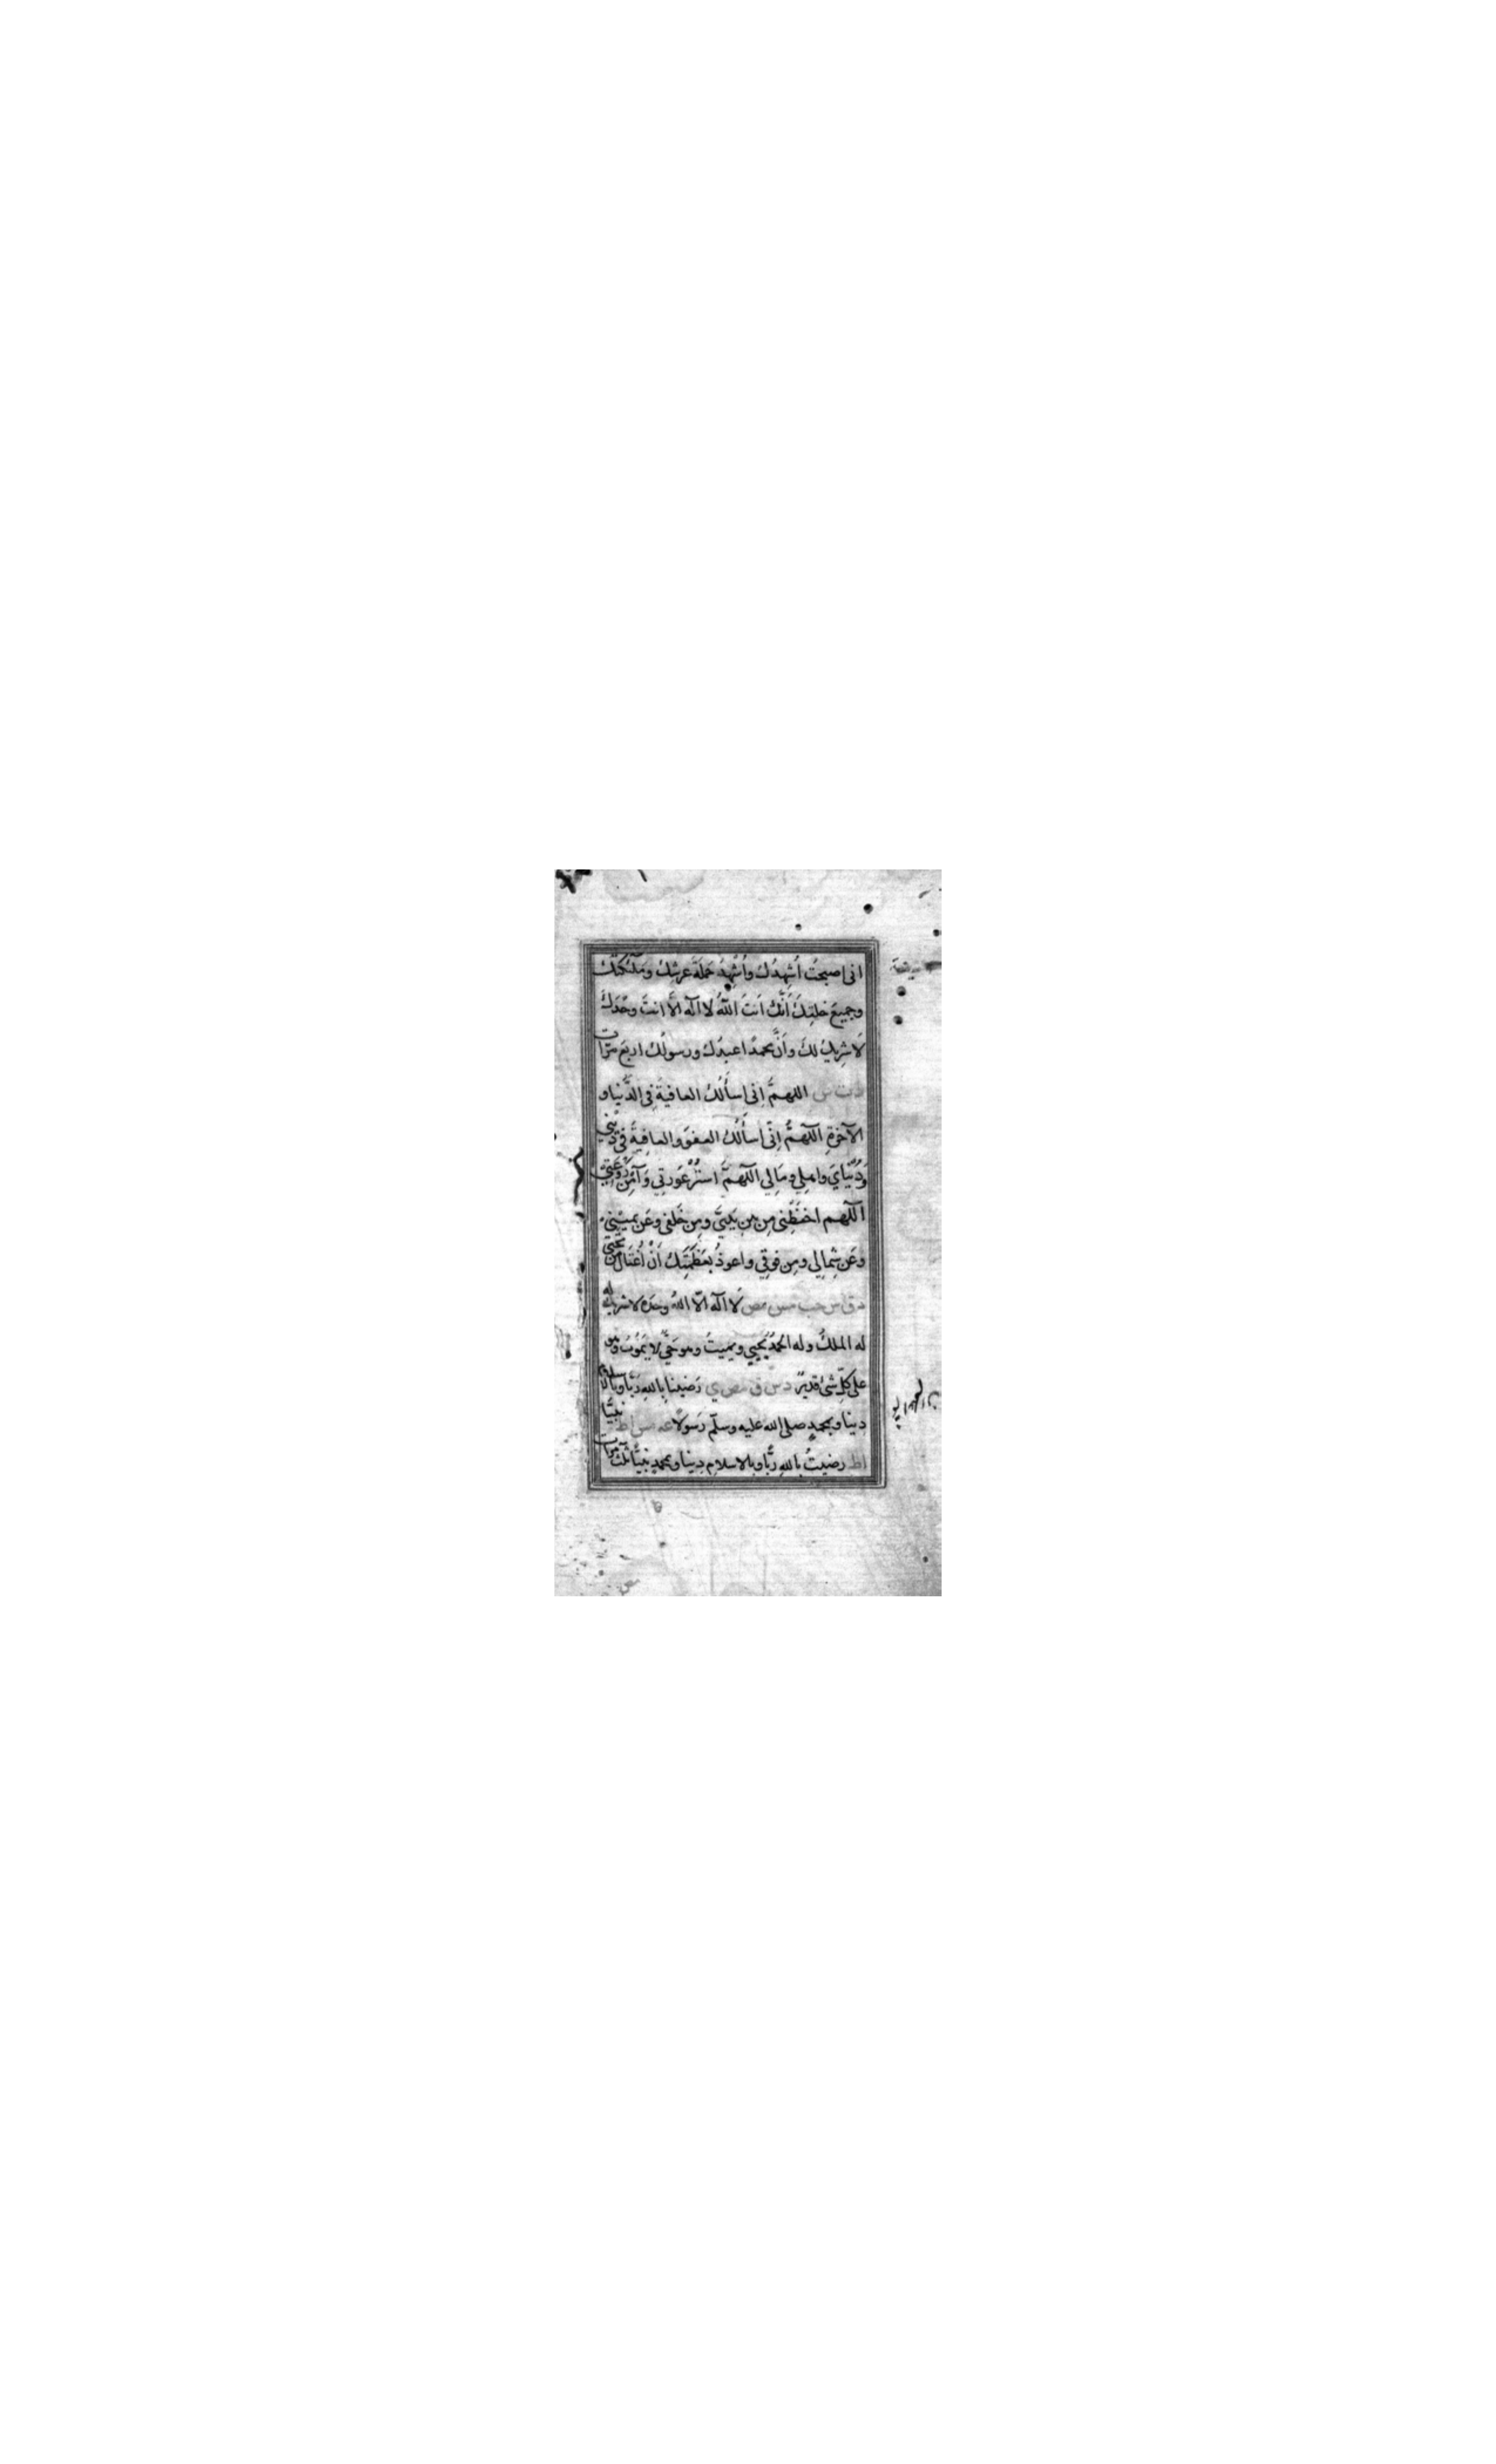 انى اصبحتُ اُشهِدُكَ واُشْهِدُ حَمَلَةَ عرشِكَ ومَلٰئكتَكَ
وجميعَ خلقِكَ أَنَّكَ اَنتَ اللّٰهُ لا اله الّا انتَ وحْدَكَ
لَا شريكَ لكَ واَنَّ محمدًا عبدُكَ ورسولُكَ اربعَ مرّات
دت س اللهمَّ اِنى اسأَلُكَ العافيةَ فِى الدُّنيا و
الآخرةِ اللّهمَّ اِنّى اسأَلُكَ العفوَ والعافِيةَ فى دِيْنِي
وَدُنْيَايَ واهلِي ومَالِي اللّهمَّ استُرْ عَورتِي وَآمِنْ رَوْعَتِيْ
اللّهم احفَظْنِى مِن بينِ يَدَيَّ ومِن خَلفِى وعَن يميْنِي
وعَن شِمالِي ومِن فوقِي واعوذُ بعَظَمَتِكَ اَنْ اُغتَالَ مِن تَحْتِي
د ق س حب مس مص لَا اله الّا اللّٰهُ وحدَه لا شريكَ له
له الملكُ وله الحمدُ يُحيِي ويميتُ وهو حَيٌّ لا يَمُوتُ وهو
على كلِّ شئٍ قديرٌ د س ق مص ي رَضِينا باللّٰهِ ربًّا وبالاسلام
دينا وبمحمدٍ صلى الله عليه وسلّم رَسولًا عه مس اط نبيًّا
اط رضيتُ باللّٰهِ ربًّا وبالاسلامِ دِينا وبمحمدٍ نبيًّا ثلٰثَ مرّات